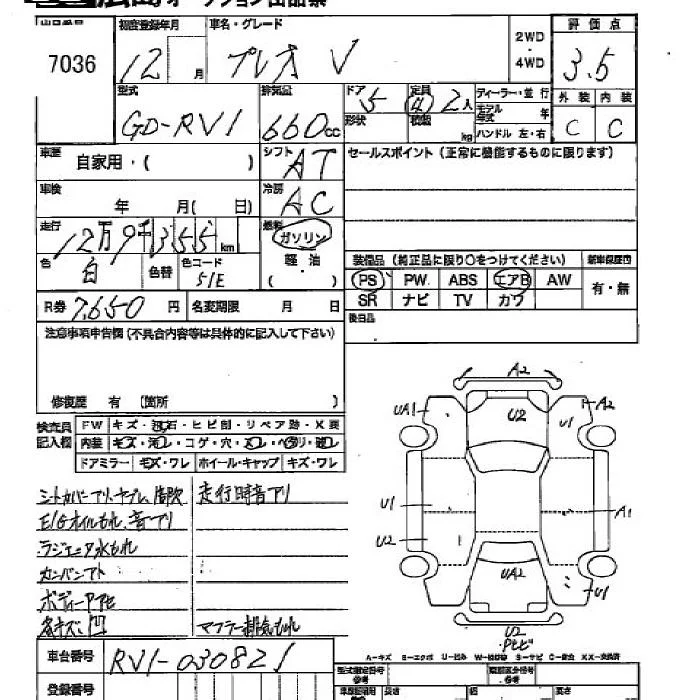 広島オークション出品票
出品番号 初度登録年月 車名・グレード 2WD・4WD 評価点
7036 12 月 プレオ V 3.5
型式 排気量 ドア 定員 ディーラー・並行 外装 内装
GD-RV1 660cc 5 ④ 2人 モデル年式 年 C C
形状 積載 kg ハンドル 左・右
車歴 自家用・( ) シフト AT セールスポイント (正常に機能するものに限ります)
車検 年 月( 日) 冷房 AC
走行 12万9千355km 燃料 ガソリン
色 白 色替 色コード 51E 軽・油 ( )
装備品 (純正品に限り〇をつけてください) 新車保証書
PS PW ABS エアB AW 有・無
SR ナビ TV カワ
R券 7,650 円 名変期限 月 日 後日品
注意事項申告欄(不具合内容等は具体的に記入して下さい)
修復歴 有 (箇所 )
検査員記入欄 FW キズ・飛石・ヒビ割・リペア跡・X要
内装 キズ・汚レ・コゲ・穴・スレ・ヘタリ・破レ
ドアミラー キズ・ワレ ホイール・キャップ キズ・ワレ
走行時音アリ
E/Gオイルもれ、音アリ
ラジエータ水もれ
カンバンアト
ボディーアセ
各キズ凹 マフラー排気もれ
A2
UA1 U2 U1 A2
U1 A1
U2
UA2 U1
U2
・Pヒビ
A-キズ E-エクボ U-凹み W-補修跡 S-サビ C-腐食 XX-交換済
車台番号 RV1-030821
登録番号
型式指定番号 参考 類別区分番号 参考
長さ 幅 高さ